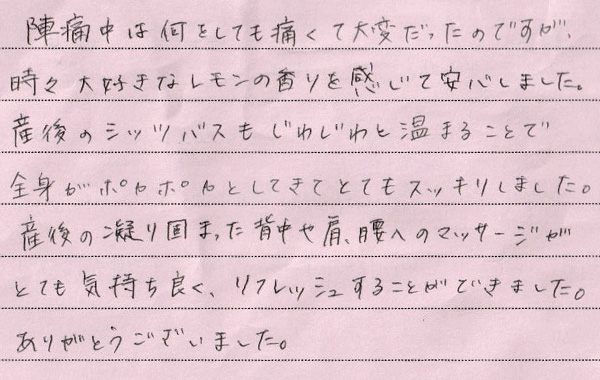 陣痛中は何をしても痛くて大変だったのですが、
時々大好きなレモンの香りを感じて安心しました。
産後のシッツバスもじわじわと温まることで
全身がポカポカとしてきてとてもスッキリしました。
産後の凝り固まった背中や肩、腰へのマッサージが
とても気持ち良く、リフレッシュすることができました。
ありがとうございました。